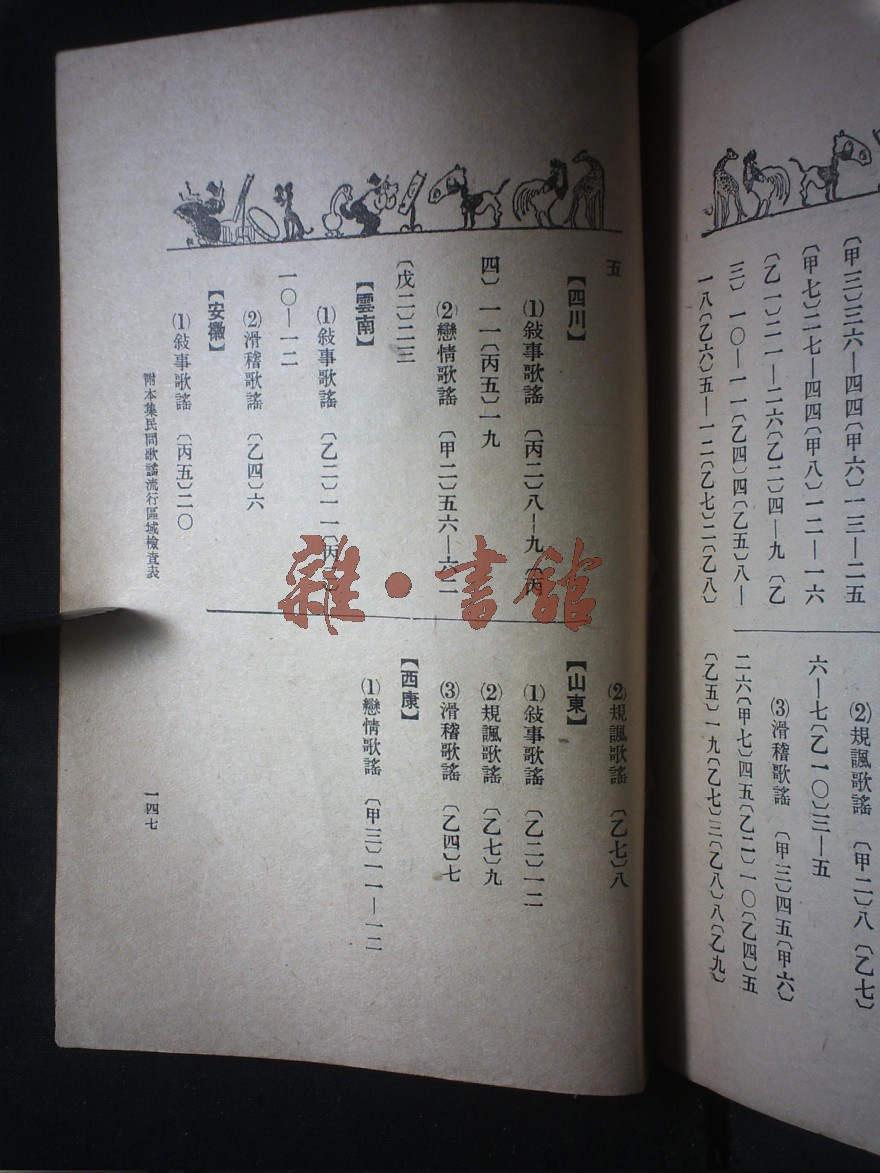 〔甲三〕三六—四四〔甲六〕一三—二五
〔甲七〕二七—四四〔甲八〕一二—一六
〔乙一〕二一—二六〔乙二〕四—九〔乙
三〕一〇—一一〔乙四〕四〔乙五〕八—
一八〔乙六〕五—一二〔乙七〕二〔乙八〕
⑵規諷歌謠〔甲二〕八〔乙七〕
六—七〔乙一〇〕三—五
⑶滑稽歌謠〔甲三〕四五〔甲六〕
二六〔甲七〕四五〔乙二〕一〇〔乙四〕五
〔乙五〕一九〔乙七〕三〔乙八〕八〔乙九〕
五
【四川】
⑴敍事歌謠〔丙二〕八—九〔丙
四〕一一〔丙五〕一九
⑵戀情歌謠〔甲二〕五六—六二
〔戊二〕二三
【雲南】
⑴敍事歌謠〔乙二〕一一〔丙
一〇—一二
⑵滑稽歌謠〔乙四〕六
【安徽】
⑴敍事歌謠〔丙五〕二〇
⑵規諷歌謠〔乙七〕八
【山東】
⑴敍事歌謠〔乙二〕一二
⑵規諷歌謠〔乙七〕九
⑶滑稽歌謠〔乙四〕七
【西康】
⑴戀情歌謠〔甲三〕一一—一二
附本集民間歌謠流行區域檢查表
一四七
雜・書館